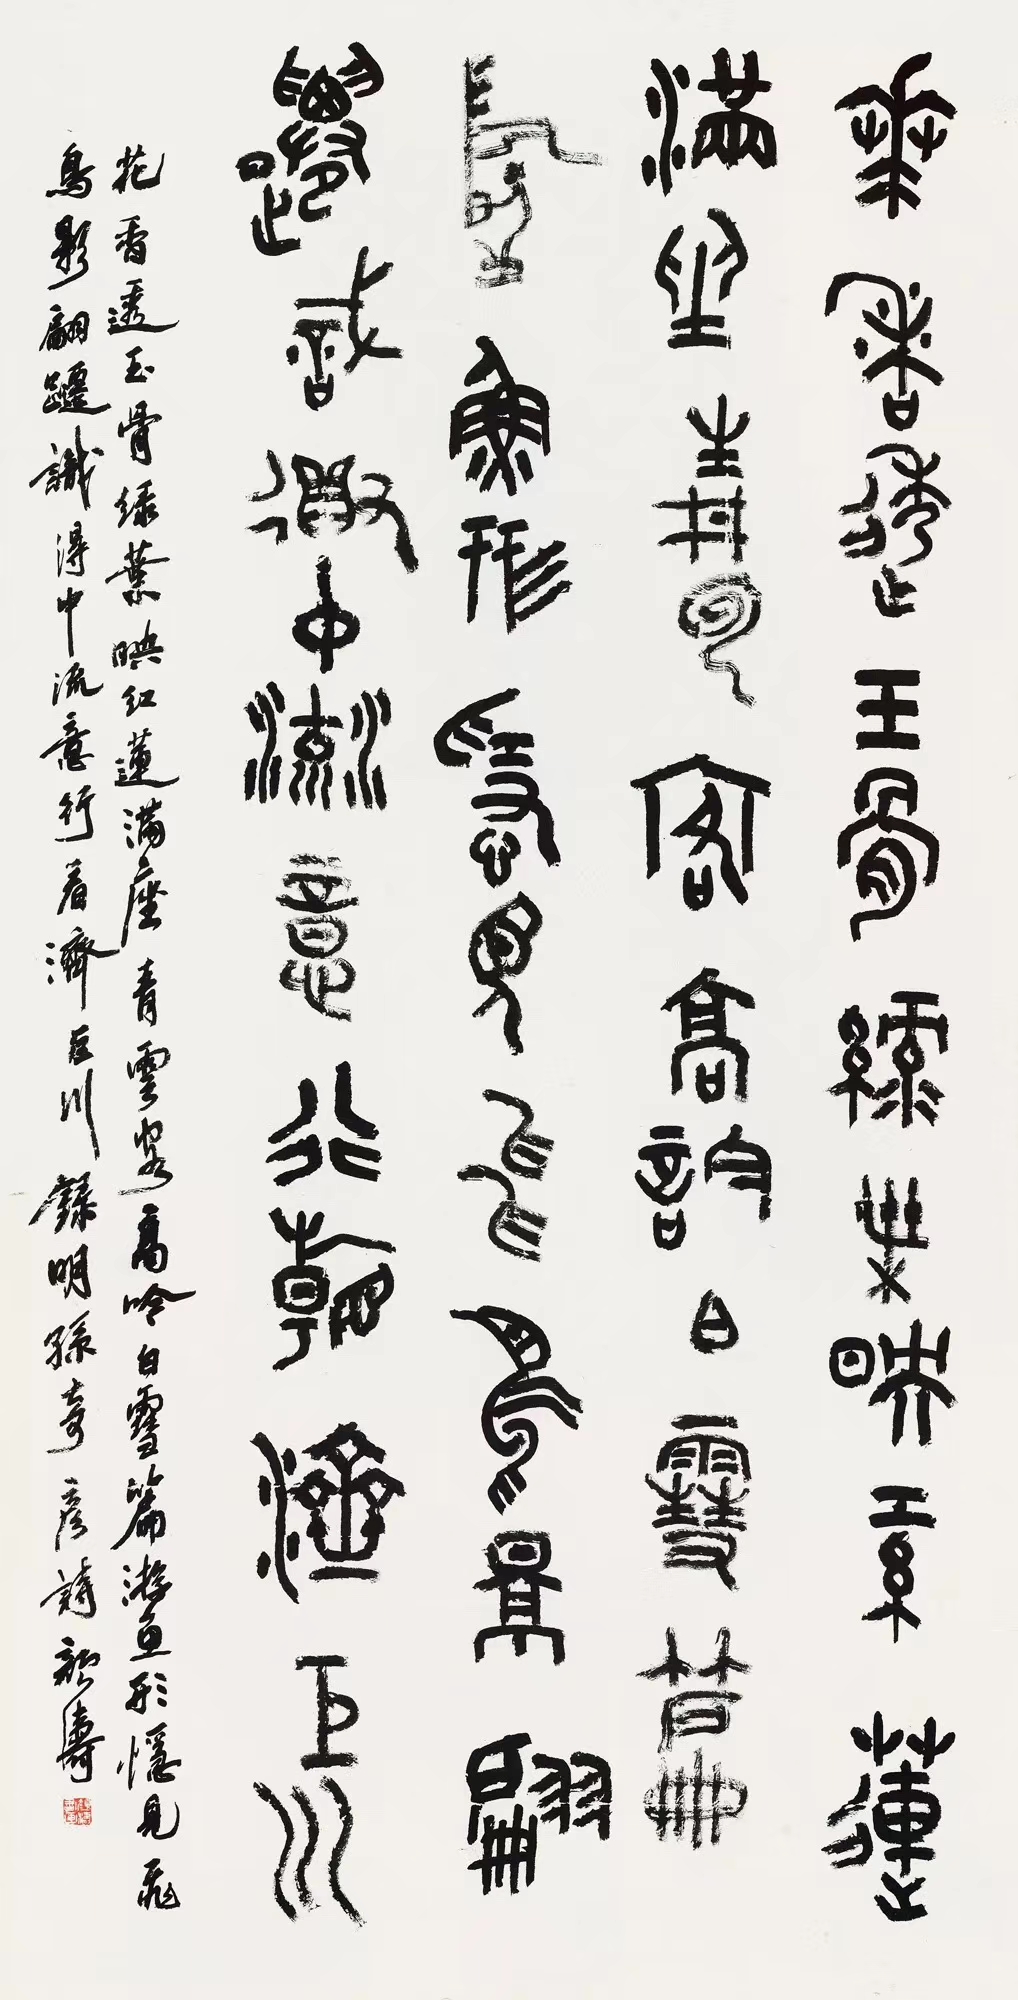 花香透玉骨綠葉映紅蓮
滿座青雲客高吟白雪篇
游魚形隱見飛鳥影翩
躚識得中流意行看濟巨川
花香透玉骨綠葉映紅蓮滿座青雲客高吟白雪篇游魚形隱見飛
鳥影翩躚識得中流意行看濟巨川 錄明孫奇彥詩